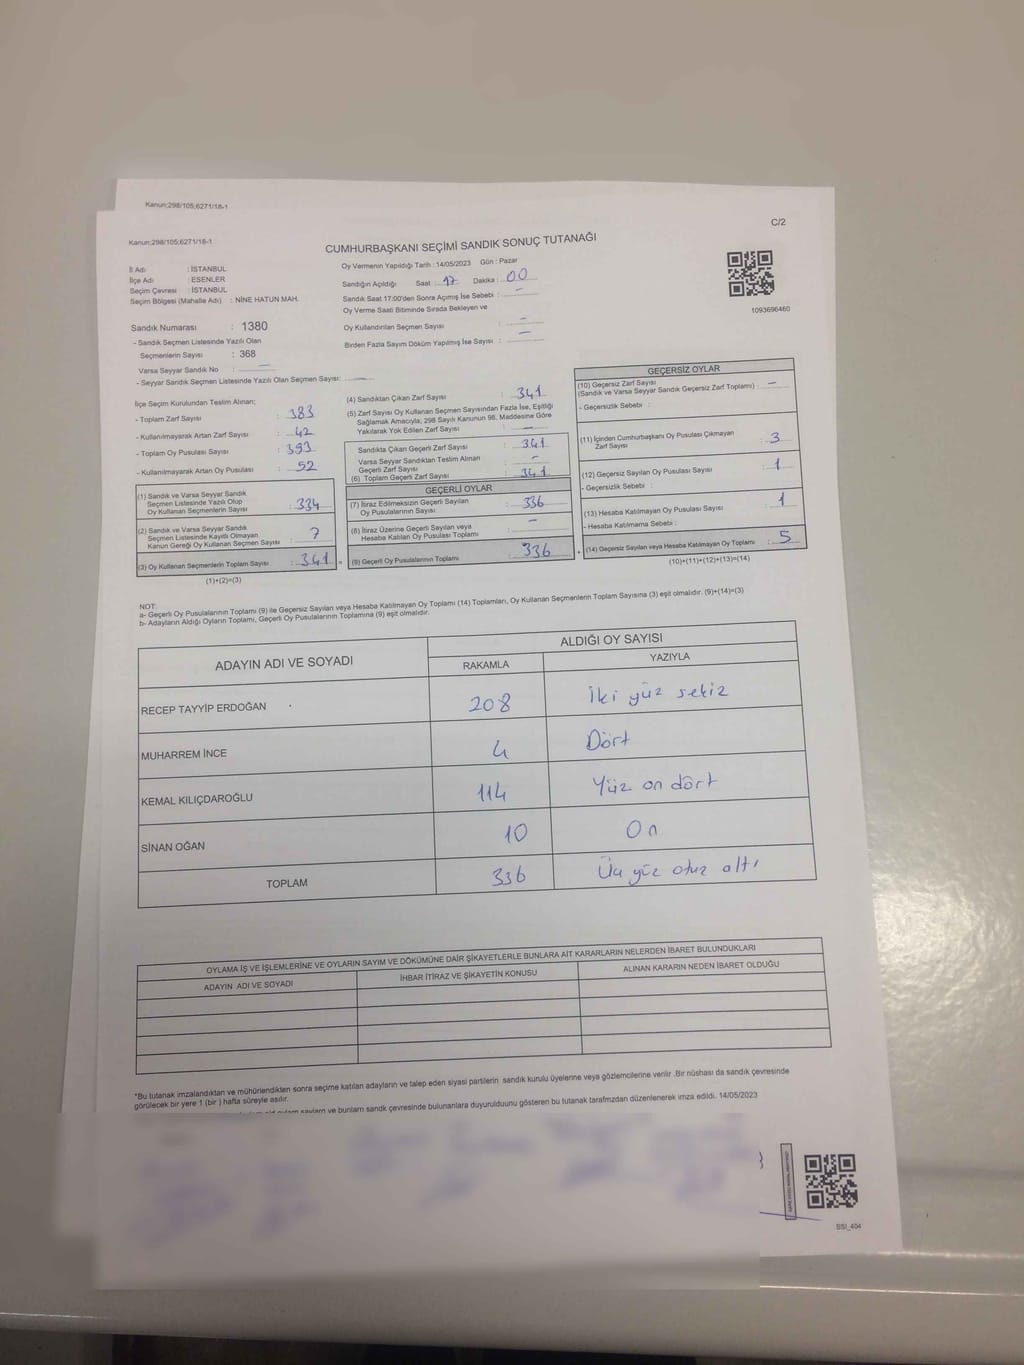 Kanun;298/105;6271/18-1
Kanun;298/105;6271/18-1
C/2
CUMHURBAŞKANI SEÇİMİ SANDIK SONUÇ TUTANAĞI
İl Adı : İSTANBUL
İlçe Adı : ESENLER
Seçim Çevresi : İSTANBUL
Seçim Bölgesi (Mahalle Adı) : NİNE HATUN MAH.
Sandık Numarası : 1380
- Sandık Seçmen Listesinde Yazılı Olan
Seçmenlerin Sayısı : 368
Varsa Seyyar Sandık No : —
- Seyyar Sandık Seçmen Listesinde Yazılı Olan Seçmen Sayısı: —
Oy Vermenin Yapıldığı Tarih : 14/05/2023 Gün : Pazar
Sandığın Açıldığı Saat : 17 Dakika : 00
Sandık Saat 17:00'den Sonra Açımış İse Sebebi : —
Oy Verme Saati Bitiminde Sırada Bekleyen ve
Oy Kullandırılan Seçmen Sayısı : —
Birden Fazla Sayım Döküm Yapılmış İse Sayısı : —
1093696460
İlçe Seçim Kurulundan Teslim Alınan;
- Toplam Zarf Sayısı : 383
- Kullanılmayarak Artan Zarf Sayısı : 42
- Toplam Oy Pusulası Sayısı : 393
- Kullanılmayarak Artan Oy Pusulası : 52
(1) Sandık ve Varsa Seyyar Sandık
Seçmen Listesinde Yazılı Olup
Oy Kullanan Seçmenlerin Sayısı : 334
(2) Sandık ve Varsa Seyyar Sandık
Seçmen Listesinde Kayıtlı Olmayan
Kanun Gereği Oy Kullanan Seçmen Sayısı : 7
(3) Oy Kullanan Seçmenlerin Toplam Sayısı : 341 =
(1)+(2)=(3)
(4) Sandıktan Çıkan Zarf Sayısı : 341
(5) Zarf Sayısı Oy Kullanan Seçmen Sayısından Fazla İse, Eşitliği
Sağlamak Amacıyla; 298 Sayılı Kanunun 98. Maddesine Göre
Yakılarak Yok Edilen Zarf Sayısı : —
Sandıkta Çıkan Geçerli Zarf Sayısı : 341
Varsa Seyyar Sandıktan Teslim Alınan
Geçerli Zarf Sayısı : —
(6) Toplam Geçerli Zarf Sayısı : 341
GEÇERLİ OYLAR
(7) İtiraz Edilmeksizin Geçerli Sayılan
Oy Pusulalarının Sayısı : 336
(8) İtiraz Üzerine Geçerli Sayılan veya
Hesaba Katılan Oy Pusulası Toplamı : —
(9) Geçerli Oy Pusulalarının Toplamı : 336 +
GEÇERSİZ OYLAR
(10) Geçersiz Zarf Sayısı
(Sandık ve Varsa Seyyar Sandık Geçersiz Zarf Toplamı) : —
- Geçersizlik Sebebi :
(11) İçinden Cumhurbaşkanı Oy Pusulası Çıkmayan
Zarf Sayısı : 3
(12) Geçersiz Sayılan Oy Pusulası Sayısı : 1
- Geçersizlik Sebebi :
(13) Hesaba Katılmayan Oy Pusulası Sayısı : 1
- Hesaba Katılmama Sebebi :
(14) Geçersiz Sayılan veya Hesaba Katılmayan Oy Toplamı : 5
(10)+(11)+(12)+(13)=(14)
NOT:
a- Geçerli Oy Pusulalarının Toplamı (9) ile Geçersiz Sayılan veya Hesaba Katılmayan Oy Toplamı (14) Toplamları, Oy Kullanan Seçmenlerin Toplam Sayısına (3) eşit olmalıdır. (9)+(14)=(3)
b- Adayların Aldığı Oyların Toplamı, Geçerli Oy Pusulalarının Toplamına (9) eşit olmalıdır.
ADAYIN ADI VE SOYADI
ALDIĞI OY SAYISI
RAKAMLA YAZIYLA
RECEP TAYYİP ERDOĞAN 208 İki yüz sekiz
MUHARREM İNCE 4 Dört
KEMAL KILIÇDAROĞLU 114 Yüz on dört
SİNAN OĞAN 10 On
TOPLAM 336 Üç yüz otuz altı
OYLAMA İŞ VE İŞLEMLERİNE VE OYLARIN SAYIM VE DÖKÜMÜNE DAİR ŞİKAYETLERLE BUNLARA AİT KARARLARIN NELERDEN İBARET BULUNDUKLARI
ADAYIN ADI VE SOYADI İHBAR İTİRAZ VE ŞİKAYETİN KONUSU ALINAN KARARIN NEDEN İBARET OLDUĞU
*Bu tutanak imzalandıktan ve mühürlendikten sonra seçime katılan adayların ve talep eden siyasi partilerin sandık kurulu üyelerine veya gözlemcilerine verilir .Bir nüshası da sandık çevresinde
görülecek bir yere 1 (bir ) hafta süreyle asılır.
ve bunların sandık çevresinde bulunanlara duyurulduunu gösteren bu tutanak tarafımızdan düzenlenerek imza edildi. 14/05/2023
SSI_404